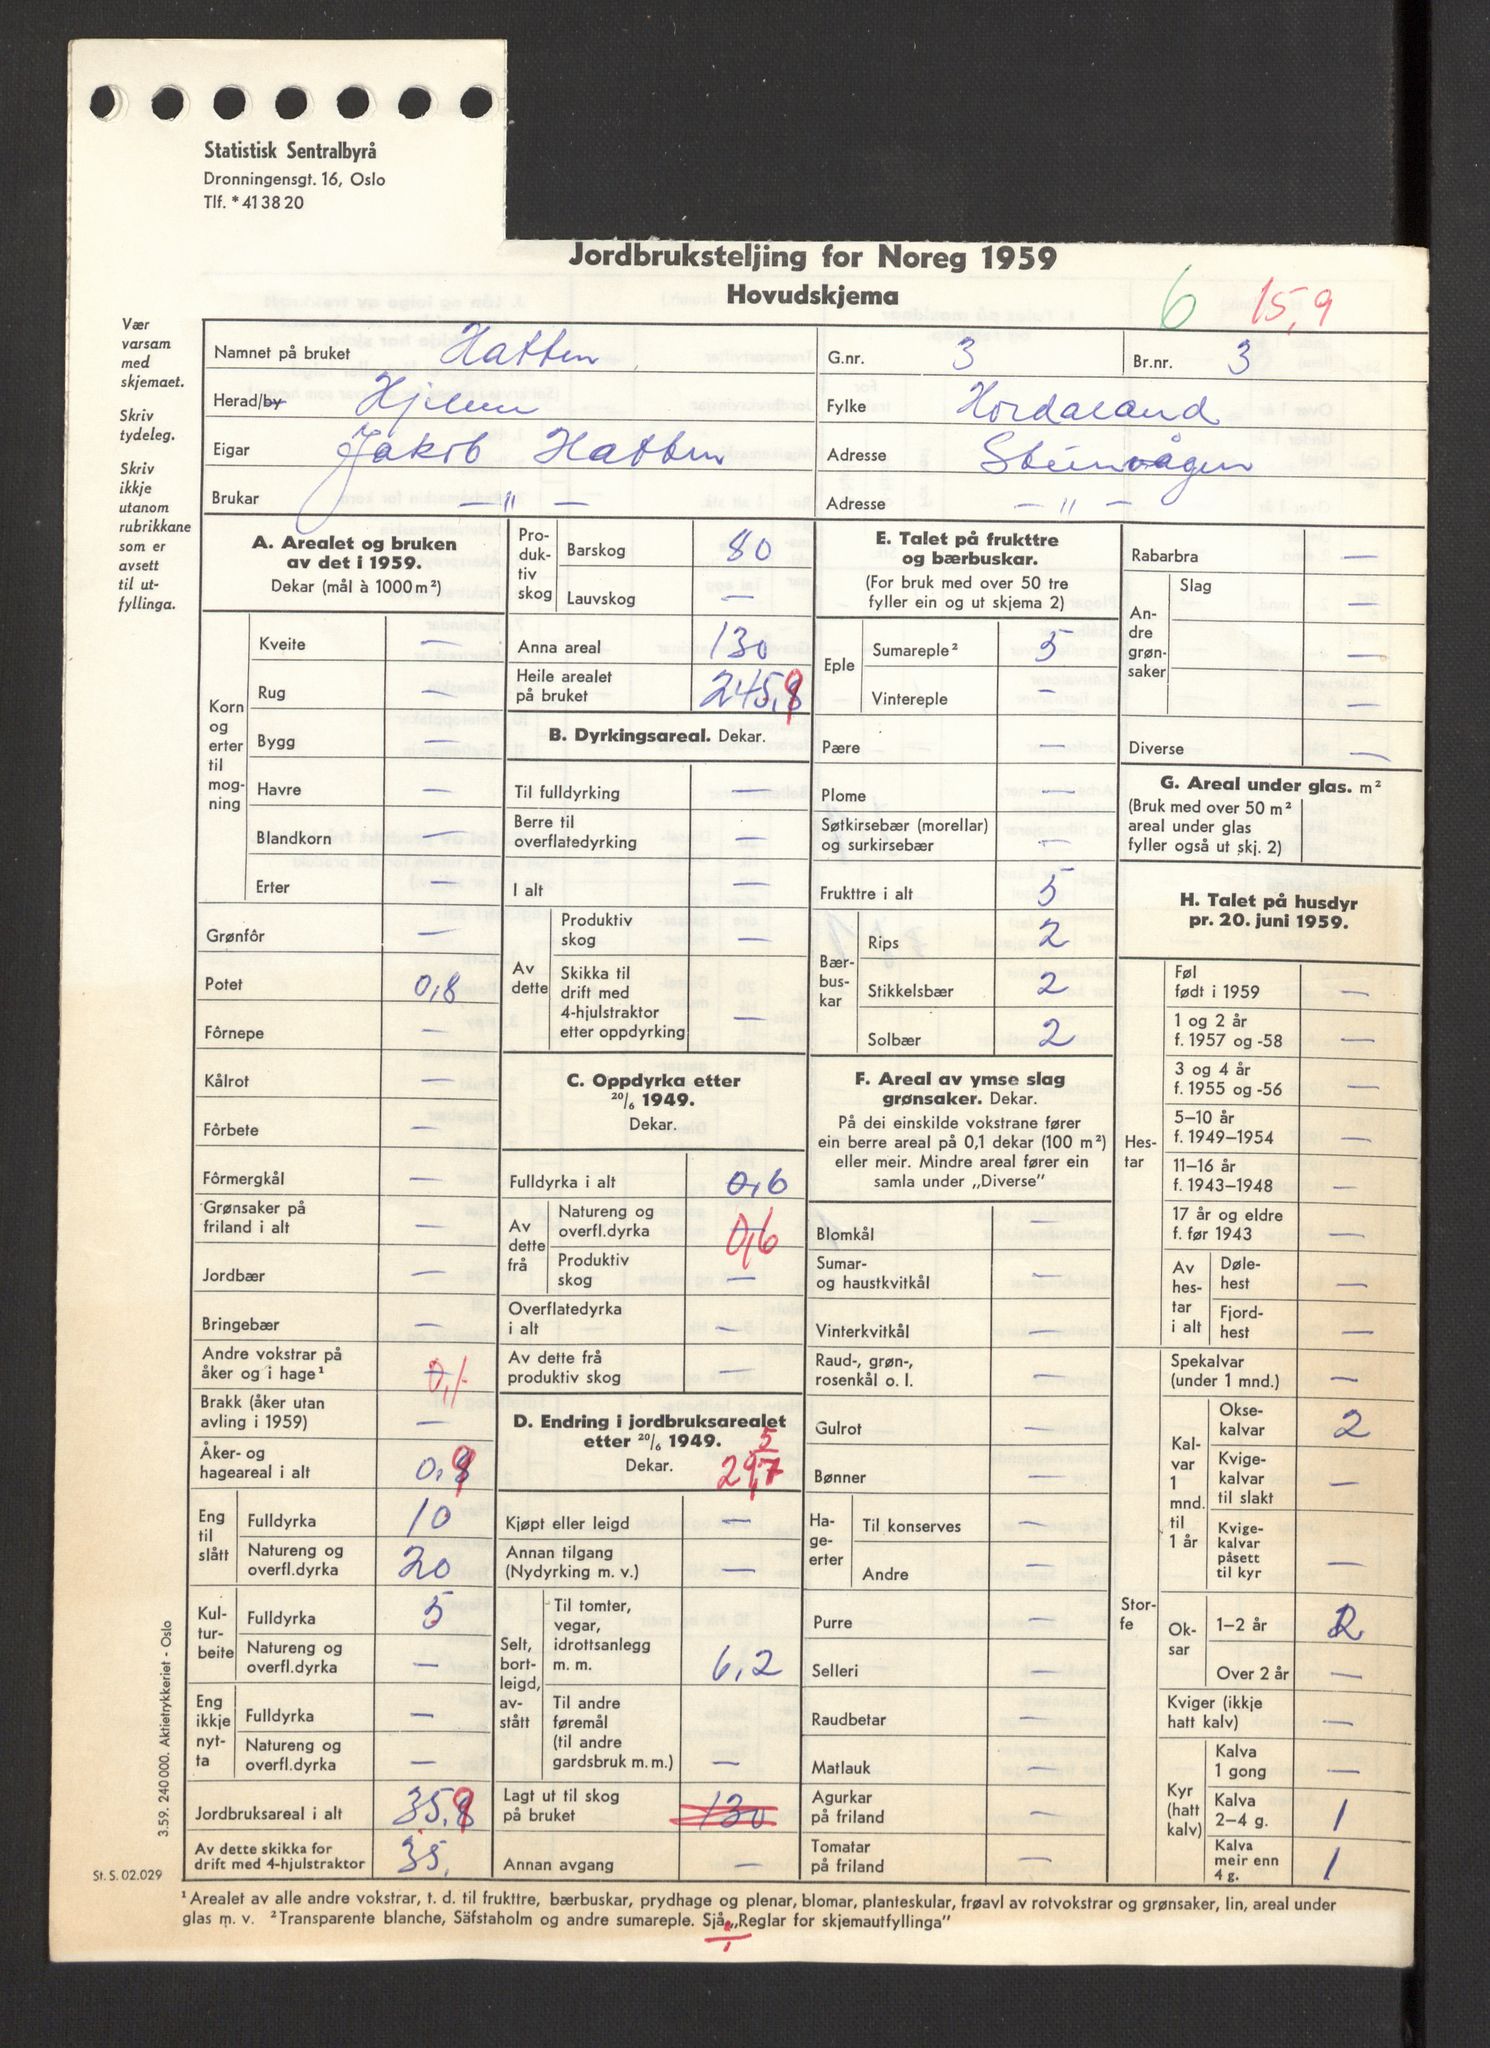 Statistisk Sentralbyrå
Dronningensgt. 16, Oslo
Tlf. *413820
Jordbruksteljing for Noreg 1959
Hovudskjema
6 15,9
Vær varsam med skjemaet.
Skriv tydeleg.
Skriv ikkje utanom rubrikkane som er avsett til utfyllinga.
Namnet på bruket Hatten G.nr. 3 Br.nr. 3
Herad/by Hjelme Fylke Hordaland
Eigar Jakob Hatten Adresse Steinvågen
Brukar — " — Adresse — " —
A. Arealet og bruken
av det i 1959.
Dekar (mål à 1000 m²)
Korn og erter til mogning
Kveite —
Rug —
Bygg —
Havre —
Blandkorn —
Erter —
Grønfôr —
Potet 0,8
Fôrnepe —
Kålrot —
Fôrbete —
Fôrmergkål —
Grønsaker på
friland i alt —
Jordbær —
Bringebær —
Andre vokstrar på
åker og i hage¹ 0,1
Brakk (åker utan
avling i 1959) —
Åker- og
hageareal i alt 0,9
Eng til slått
Fulldyrka 10
Natureng og
overfl.dyrka 20
Kulturbeite
Fulldyrka 5
Natureng og
overfl.dyrka —
Eng ikkje nytta
Fulldyrka —
Natureng og
overfl.dyrka —
Jordbruksareal i alt 35,9
Av dette skikka for
drift med 4-hjulstraktor 35,
Produktiv skog
Barskog 80
Lauvskog —
Anna areal 130
Heile arealet
på bruket 245,9
B. Dyrkingsareal. Dekar.
Til fulldyrking —
Berre til
overflatedyrking —
I alt —
Av dette
Produktiv
skog —
Skikka til
drift med
4-hjulstraktor
etter oppdyrking —
C. Oppdyrka etter
20/6 1949.
Dekar.
Fulldyrka i alt 0,6
Av dette frå
Natureng og
overfl.dyrka 0,6
Produktiv
skog —
Overflatedyrka
i alt —
Av dette frå
produktiv skog —
D. Endring i jordbruksarealet
etter 20/6 1949.
Dekar. 29,7 5
Kjøpt eller leigd —
Annan tilgang
(Nydyrking m. v.) —
Selt, bortleigd, avstått
Til tomter,
vegar,
idrottsanlegg
m. m. 6,2
Til andre
føremål
(til andre
gardsbruk m. m.) —
Lagt ut til skog
på bruket 130
Annan avgang —
E. Talet på frukttre
og bærbuskar.
(For bruk med over 50 tre
fyller ein og ut skjema 2)
Eple
Sumareple² 5
Vintereple —
Pære —
Plome —
Søtkirsebær (morellar)
og surkirsebær —
Frukttre i alt 5
Bærbuskar
Rips 2
Stikkelsbær 2
Solbær 2
F. Areal av ymse slag
grønsaker. Dekar.
På dei einskilde vokstrane fører
ein berre areal på 0,1 dekar (100 m²)
eller meir. Mindre areal fører ein
samla under „Diverse"
Blomkål —
Sumar-
og haustkvitkål —
Vinterkvitkål —
Raud-, grøn-,
rosenkål o. l. —
Gulrot —
Bønner —
Hageerter
Til konserves —
Andre —
Purre —
Selleri —
Raudbetar —
Matlauk —
Agurkar
på friland —
Tomatar
på friland —
Rabarbra —
Andre grønsaker
Slag —
—
—
Diverse —
G. Areal under glas. m²
(Bruk med over 50 m²
areal under glas
fyller også ut skj. 2)
H. Talet på husdyr
pr. 20. juni 1959.
Hestar
Føl
født i 1959 —
1 og 2 år
f. 1957 og -58 —
3 og 4 år
f. 1955 og -56 —
5–10 år
f. 1949–1954 —
11–16 år
f. 1943–1948 —
17 år og eldre
f. før 1943 —
Av hestar i alt
Dølehest —
Fjordhest —
Storfe
Spekalvar
(under 1 mnd.) —
Kalvar 1 mnd. til 1 år
Oksekalvar 2
Kvigekalvar
til slakt —
Kvigekalvar
påsett
til kyr —
Oksar
1–2 år
Over 2 år —
Kviger (ikkje
hatt kalv) —
Kyr (hatt kalv)
Kalva
1 gong —
Kalva
2–4 g. 1
Kalva
meir enn
4 g. 1
¹ Arealet av alle andre vokstrar, t. d. til frukttre, bærbuskar, prydhage og plenar, blomar, planteskular, frøavl av rotvokstrar og grønsaker, lin, areal under
glas m. v. ² Transparente blanche, Säfstaholm og andre sumareple. Sjå „Reglar for skjemautfyllinga"
3.59. 240 000. Aktietrykkeriet - Oslo
St. S. 02.029